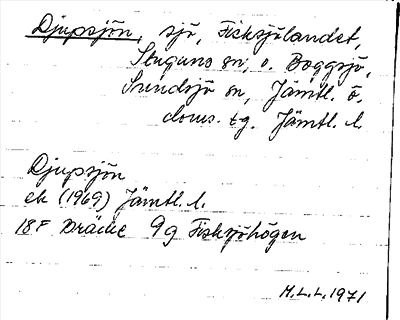 Djupsjön, sjö, Fisksjölandet,
Stuguns sn, o. Boggsjö,
Sundsjö sn, Jämtl. ö.
doms. tg. Jämtl. l.
Djupsjön
ek (1969) Jämtl. l.
18F Bräcke 9g Fisksjöhögen
M.L.L. 1971